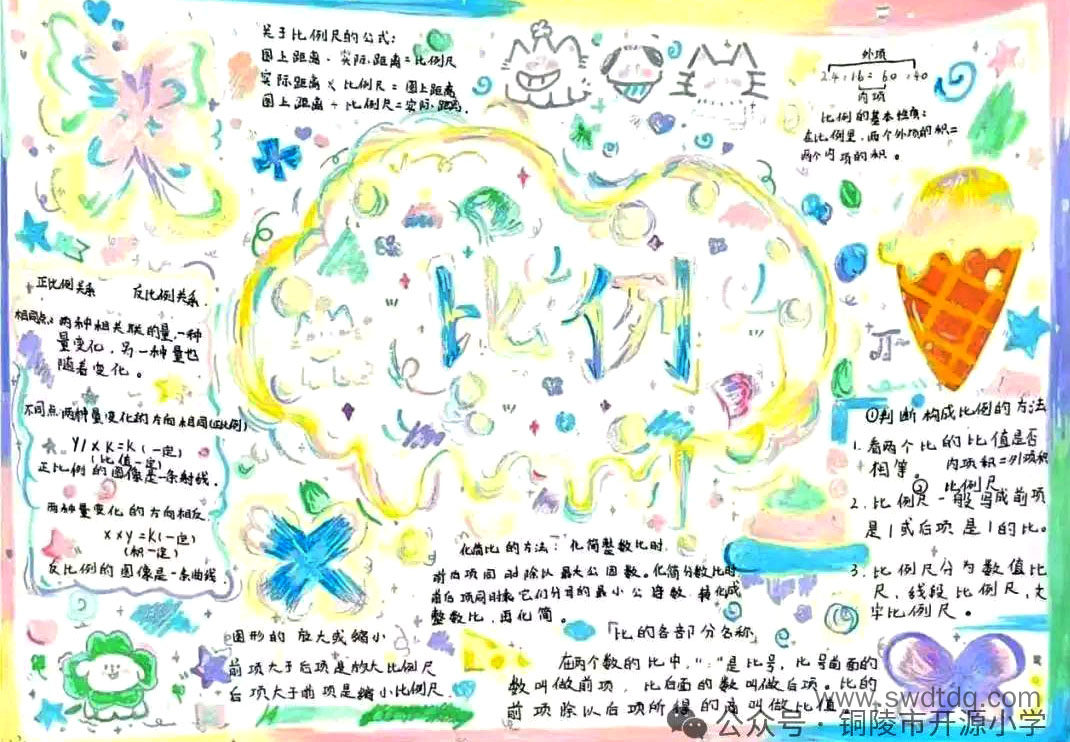 关于比例尺的公式:
图上距离·实际距离=比例尺
实际距离×比例尺=图上距离
图上距离÷比例尺=实际距离.
外项
2.4:1.6=60:40
内项
比例的基本性质:
在比例里,两个外项的积=
两个内项的积。
比例
正比例关系 反比例关系.
相同点:两种相关联的量,一种
量变化,另一种量也
随着变化。
不同点:两种量变化的方向相同(正比例)
y/x=K(一定)
(比值一定)
正比例的图像是一条射线.
两种量变化的方向相反.
x×y=K(一定)
(积一定)
反比例的图像是一条曲线.
①判断构成比例的方法
1.看两个比的比值是否
相等. 内项积=外项积
② 比例尺
2.比例尺一般写成前项
是1或后项是1的比。
3.比例尺分为数值比
尺,线段比例尺,文
字比例尺。
化简比的方法:化简整数比时.
前后项同时除以最大公因数。化简分数比时
前后项同时乘它们分母的最小公倍数,转化成
整数比,再化简。
图形的放大或缩小
前项大于后项是放大比例尺
后项大于前项是缩小比例尺.
「比的各部分名称」
在两个数的比中,":"是比号,比号前面的
数叫做前项,比后面的数叫做后项。比的
前项除以后项所得的商叫做比值。
www.swdtdq.com
公众号·铜陵市开源小学